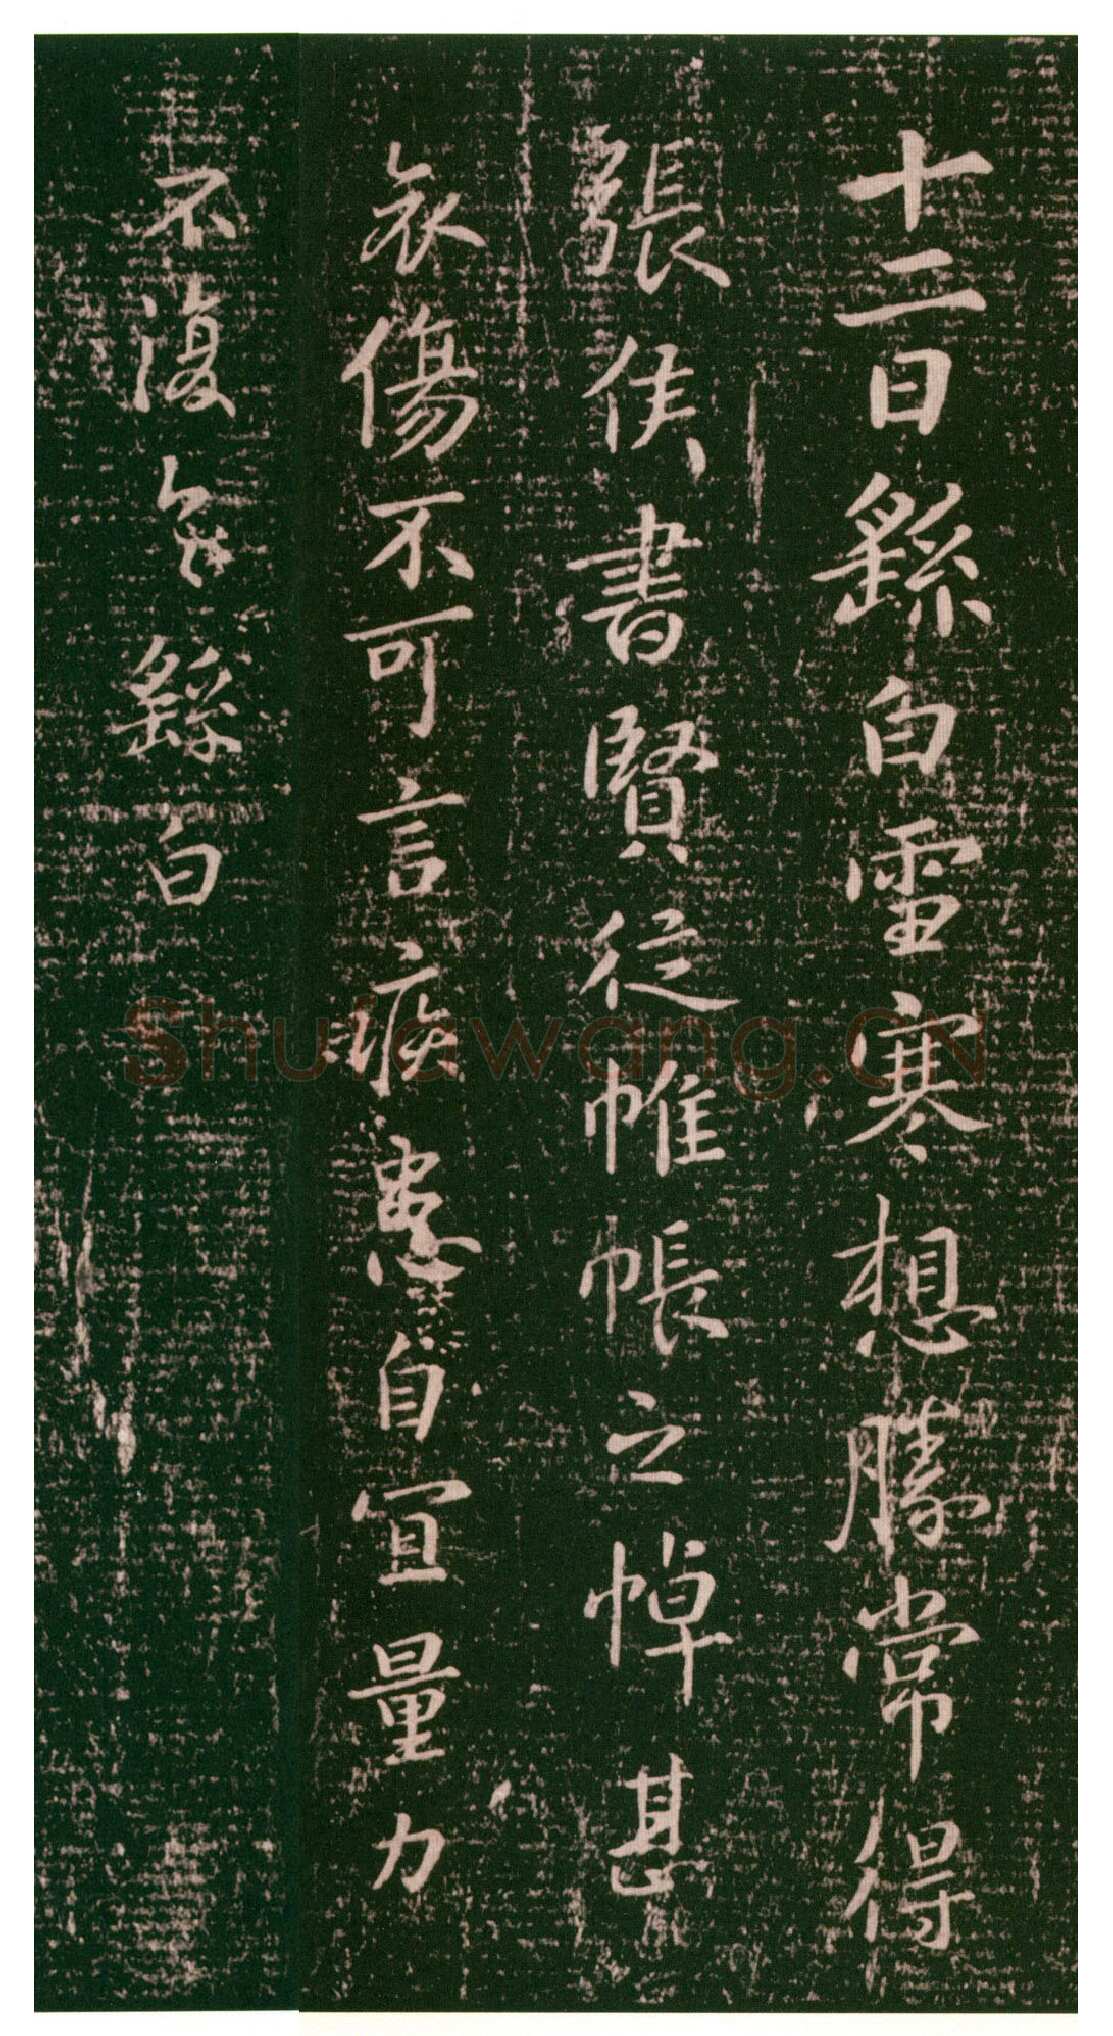 十二日繇白雪寒想勝常得
張侯書賢從帷帳之悼甚
哀傷不可言疾患自宜量力
不復具繇白
Shufawang.CN